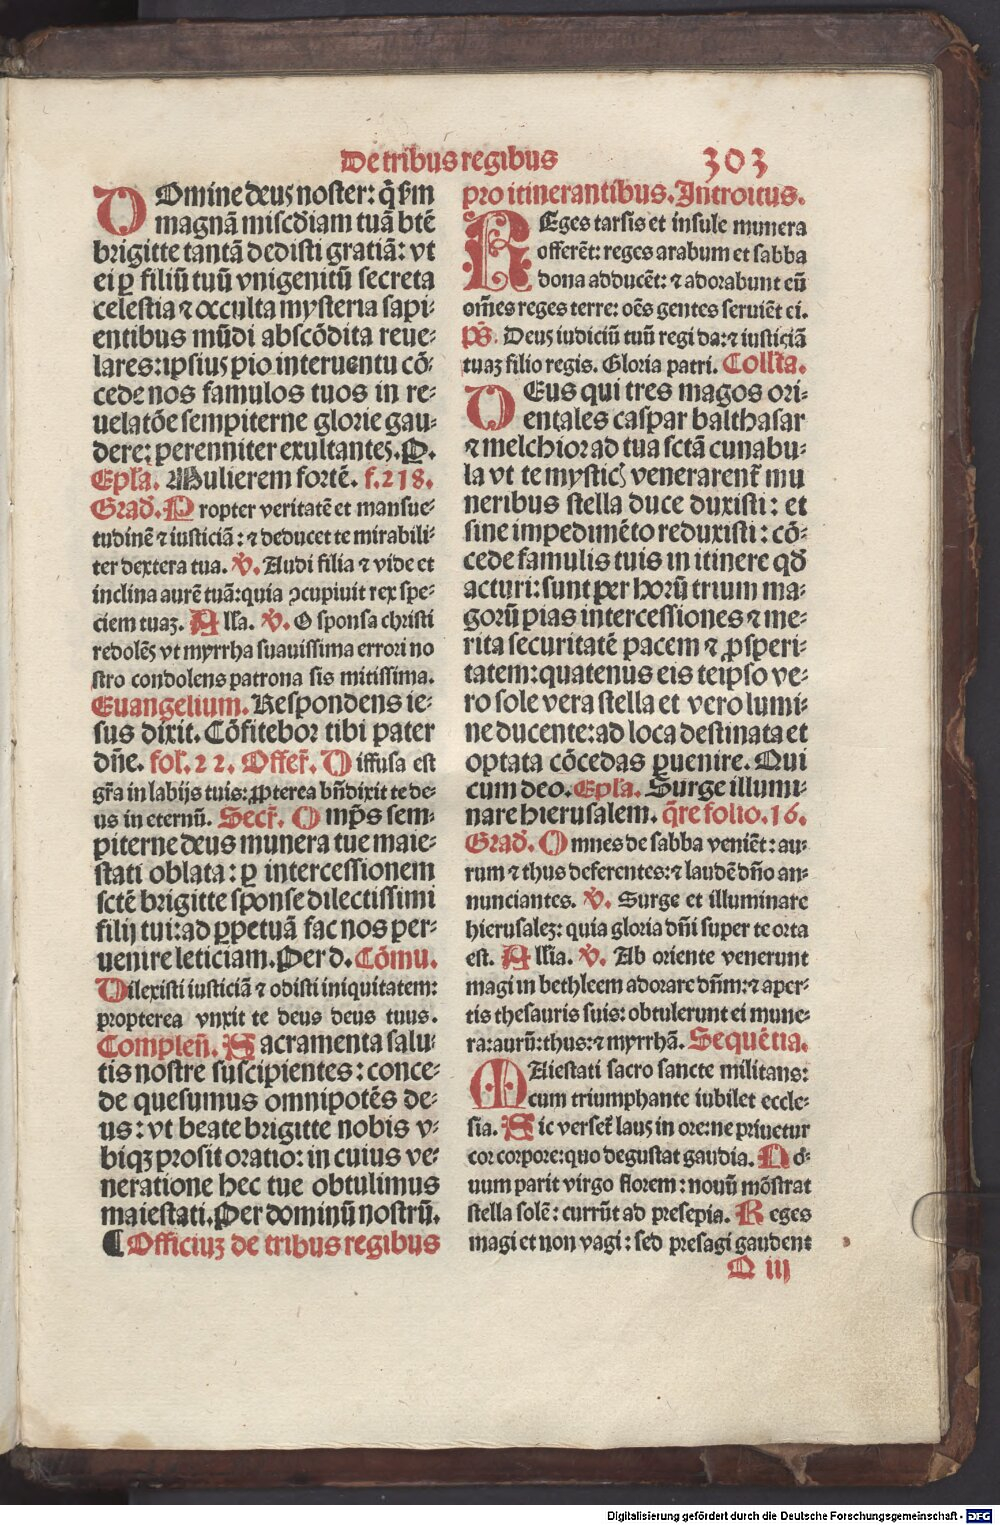 De tribus regibus 303
DOmine deus noster: q̃ ẜm
magnã miscdiam tuã btẽ
brigitte tantã dedisti gratiã: vt
ei ꝑ filiũ tuũ vnigenitũ secreta
celestia ⁊ occulta mysteria sapi-
entibus mũdi abscõdita reue-
lares: ipsius pio interuentu cõ-
cede nos famulos tuos in re-
uelatõe sempiterne glorie gau-
dere: perenniter exultantes. P.
Epl̃a. Mulierem fortẽ. f.218.
Grad̃. Propter veritatẽ et mansue-
tudinẽ ⁊ iusticiã: ⁊ deducet te mirabili-
ter dextera tua. ℣. Audi filia ⁊ vide et
inclina aurẽ tuã: quia ꝯcupiuit rex spe-
ciem tuaꝫ. All̃a. ℣. O sponsa christi
redolẽs vt myrrha suauissima errori no
stro condolens patrona sis mitissima.
Euangelium. Respondens ie-
sus dixit. Cõfitebor tibi pater
dñe. fol̃. 22. Offer̃. Diffusa est
gr̃a in labijs tuis: ꝓpterea bñdixit te de-
us in eternũ. Secr̃. Omps̃ sem-
piterne deus munera tue maie-
stati oblata: ꝑ intercessionem
sctẽ brigitte sponse dilectissimi
filij tui: ad ꝑpetuã fac nos per-
uenire leticiam. Per d. Cõmu.
Dilexisti iusticiã ⁊ odisti iniquitatem:
propterea vnxit te deus deus tuus.
Compleñ. Sacramenta salu-
tis nostre suscipientes: conce-
de quesumus omnipotẽs de-
us: vt beate brigitte nobis v-
biqꝫ prosit oratio: in cuius ve-
neratione hec tue obtulimus
maiestati. Per dominũ nostrũ.
¶ Officiuꝫ de tribus regibus
pro itinerantibus. Introitus.
REges tarsis et insule munera
offerẽt: reges arabum et sabba
dona adducẽt: ⁊ adorabunt eũ
om̃es reges terre: oẽs gentes seruiẽt ei.
p̃s. Deus iudiciũ tuũ regi da: ⁊ iusticiã
tuaꝫ filio regis. Gloria patri. Coll̃ta.
DEus qui tres magos ori-
entales caspar balthasar
⁊ melchior ad tua sctã cunabu-
la vt te mysticꝭ venerarent̃ mu
neribus stella duce duxisti: et
sine impedimẽto reduxisti: cõ-
cede famulis tuis in itinere qd̃
acturi: sunt per horũ trium ma-
gorũ pias intercessiones ⁊ me-
rita securitatẽ pacem ⁊ ꝓsperi-
tatem: quatenus eis teip̃so ve-
ro sole vera stella et vero lumi-
ne ducente: ad loca destinata et
optata cõcedas ꝑuenire. Qui
cum deo. Epl̃a. Surge illumi-
nare hierusalem. q̃re folio. 16.
Grad̃. Omnes de sabba veniẽt: au-
rum ⁊ thus deferentes: ⁊ laudẽ dño an-
nunciantes. ℣. Surge et illuminare
hierusaleꝫ: quia gloria dñi super te orta
est. All̃ia. ℣. Ab oriente venerunt
magi in bethleem adorare dñm: ⁊ aper-
tis thesauris suis: obtulerunt ei mune-
ra: aurũ: thus: ⁊ myrrhã. Sequẽtia.
MAiestati sacro sancte militans:
cum triumphante iubilet eccle-
sia. Sic verset̃ laus in ore: ne priuetur
cor corpore: quo degustat gaudia. No-
uum parit virgo florem: nouũ mõstrat
stella solẽ: currũt ad presepia. Reges
magi et non vagi: sed presagi gaudent
Q iii
Digitalisierung gefördert durch die Deutsche Forschungsgemeinschaft - DFG